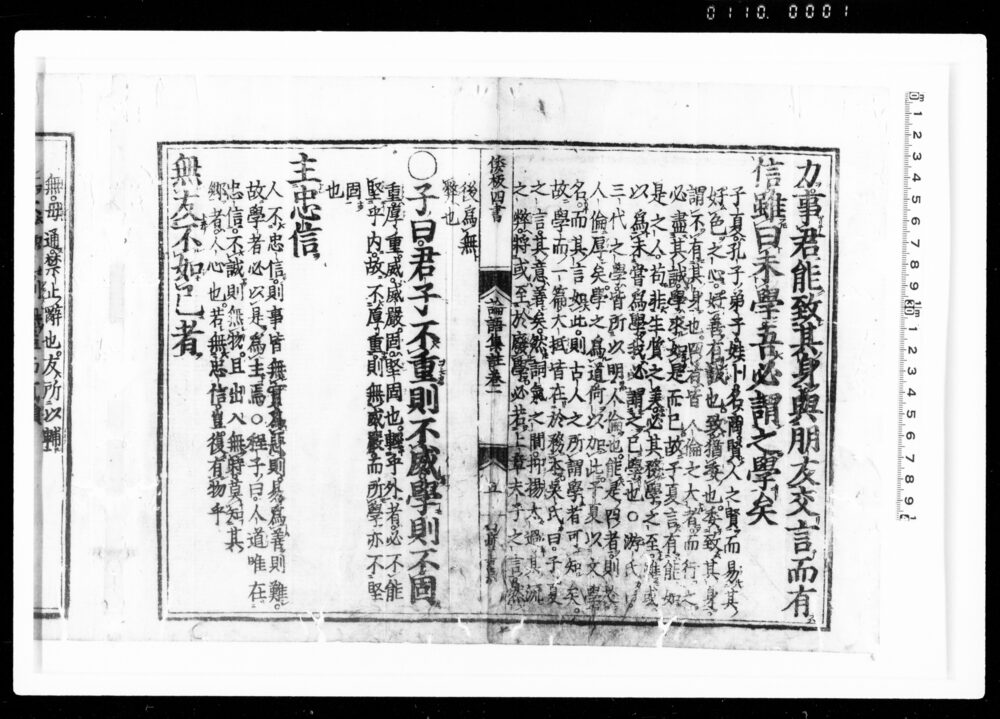 0110. 0001
力事君能致其身與朋友交言而有
信雖曰未學吾必謂之學矣
子夏孔子弟子姓卜名商賢人之賢而易其
好色之心好善有誠也致猶委也委致其身
謂不有其身也四者皆人倫之大者而行之
必盡其誠學求如是而已故子夏言有能如
是之人苟非生質之美必其務學之至雖或
以為未嘗為學我必謂之已學也○游氏曰
三代之學皆所以明人倫也能是四者則於
人倫厚矣學之為道何以加此子夏以文學
名而其言如此則古人之所謂學者可知矣
故學而一篇大抵皆在於務本吳氏曰子夏
之言其意善矣然詞氣之間抑揚太過其流
之弊將或至於廢學必若上章夫子之言然
倭板四書
論語集註卷一
五
後為無
弊也
○子曰君子不重則不威學則不固
重厚重威威嚴固堅固也輕乎外者必不能
堅乎內故不厚重則無威嚴而所學亦不堅
固
也
主忠信
人不忠信則事皆無實為惡則易為善則難
故學者必以是為主焉○程子曰人道唯在
忠信不誠則無物且出入無時莫知其
鄉者人心也若無忠信豈復有物乎
無友不如已者
無毋通禁止辭也友所以輔